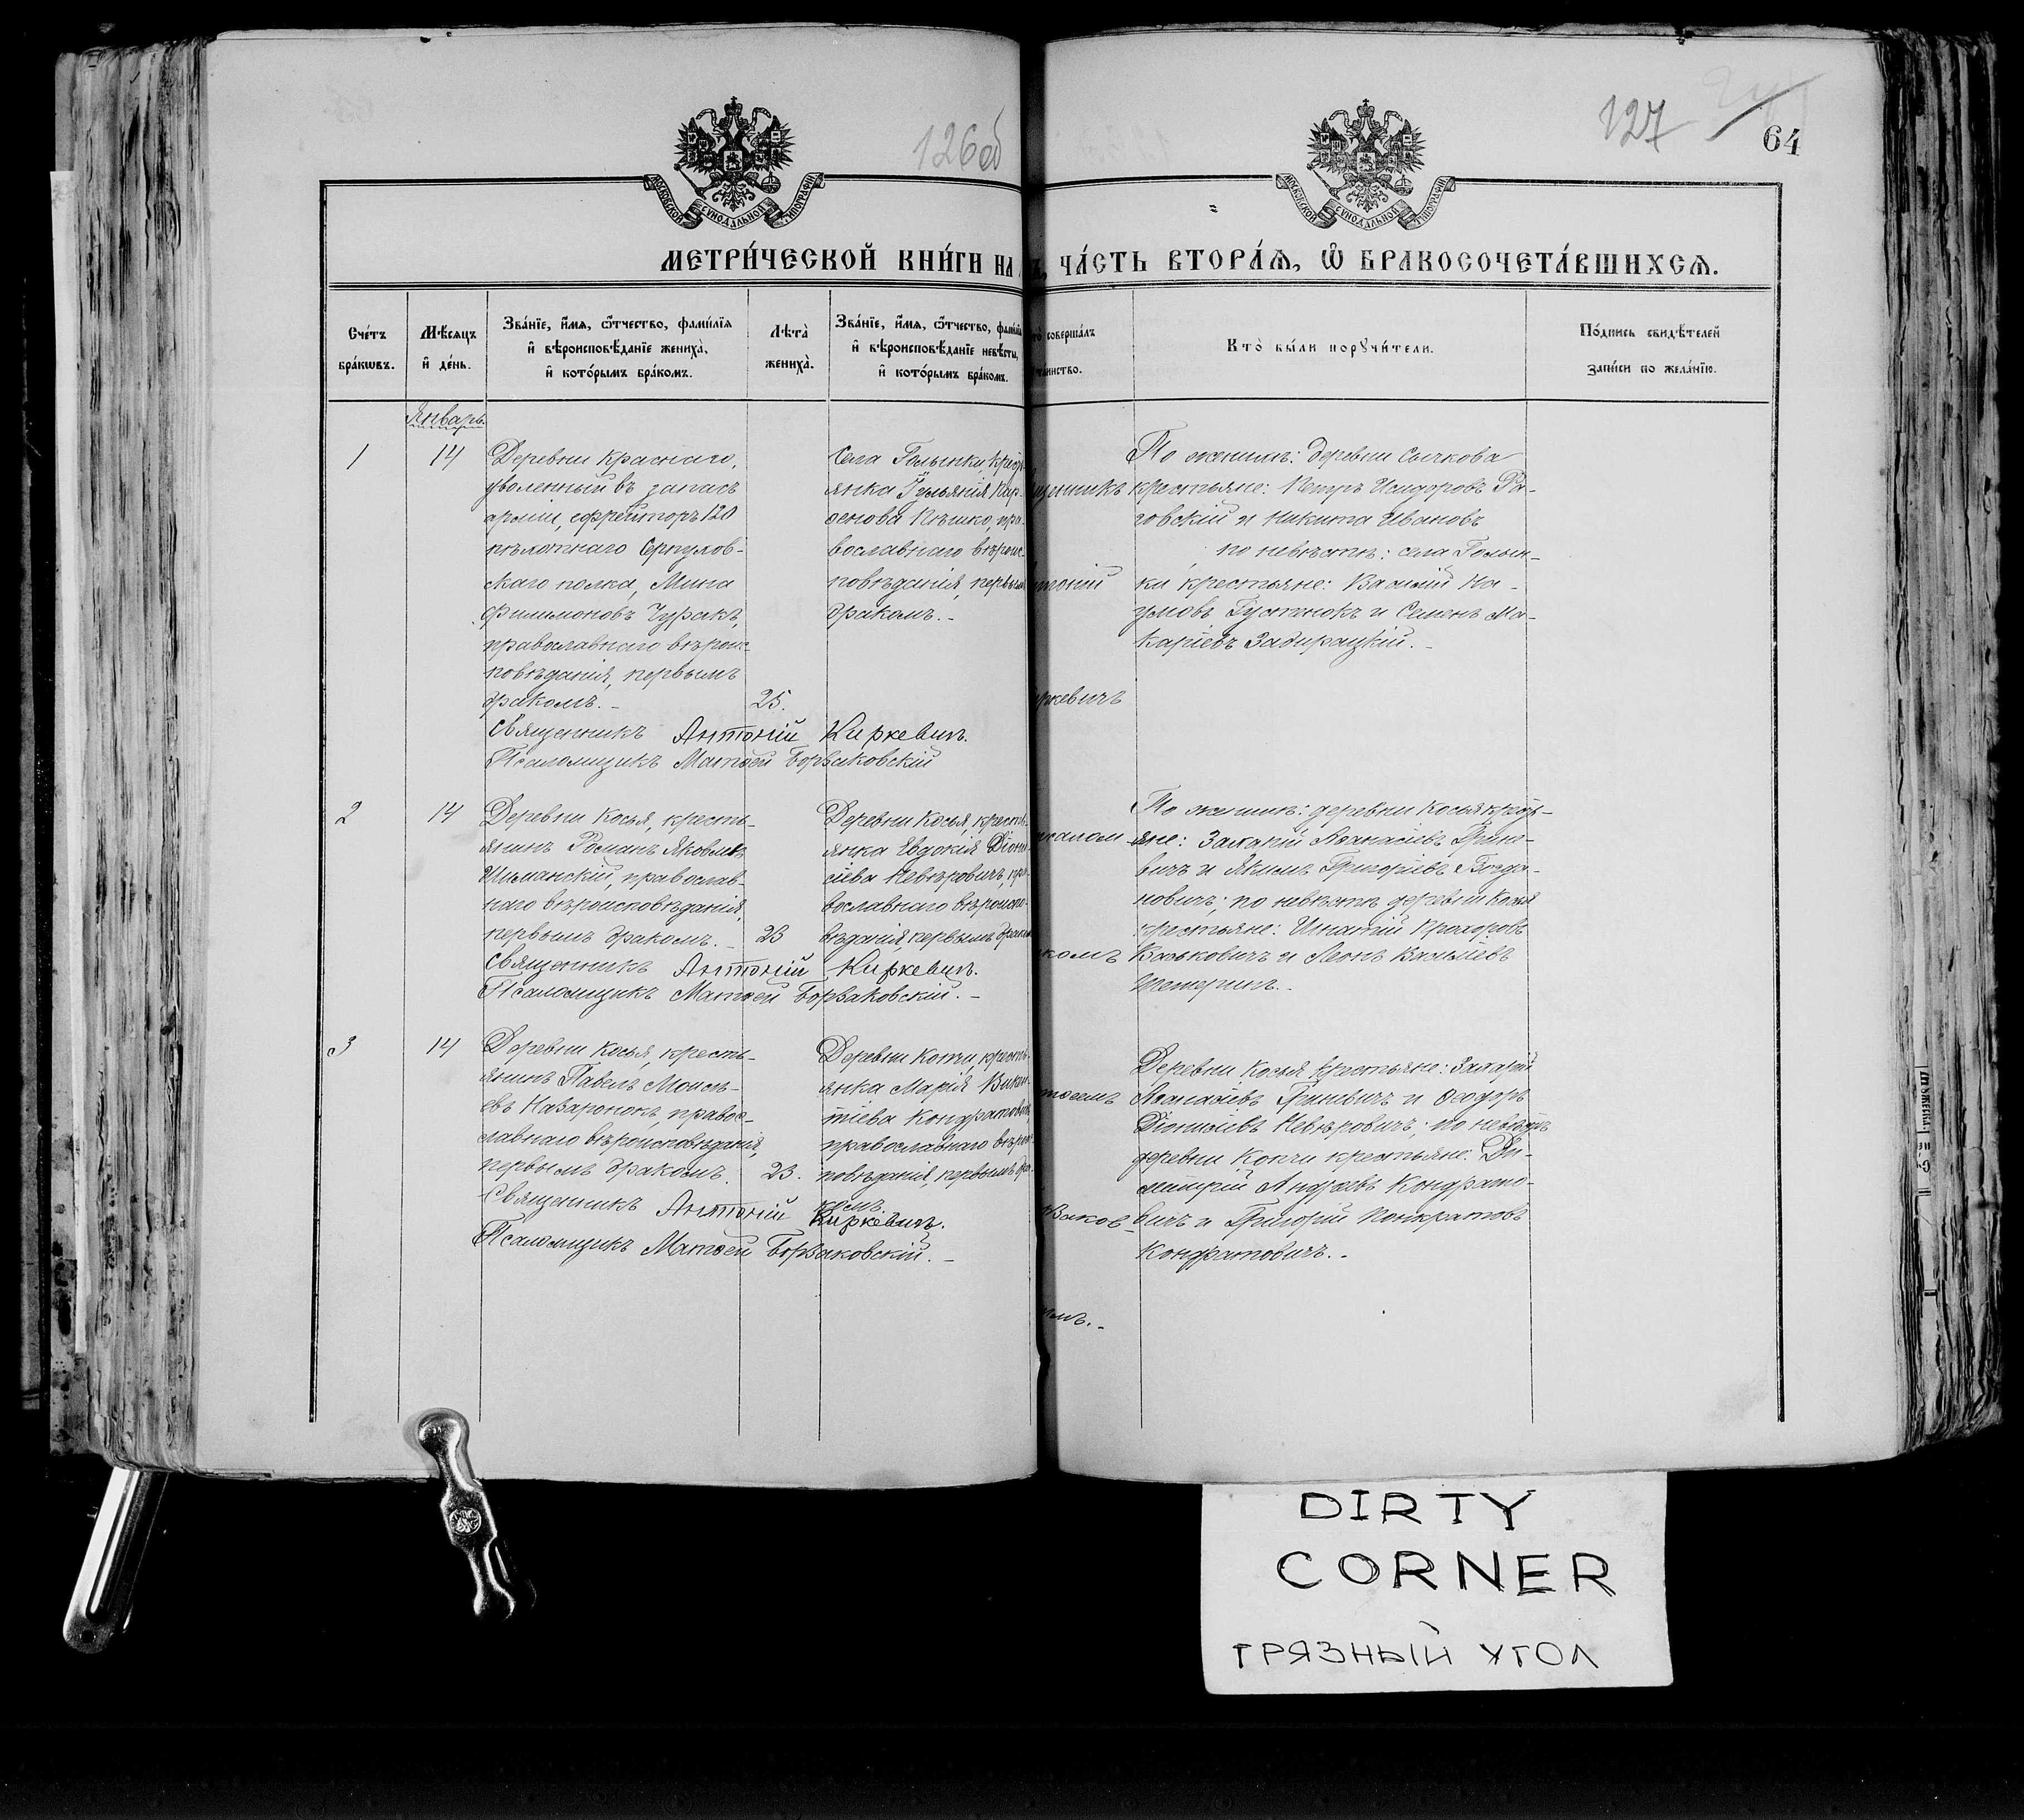 126об
127
64
МОСКОВСКОЙ СѴНОДАЛЬНОЙ ТИПОГРАФІИ
МОСКОВСКОЙ СѴНОДАЛЬНОЙ ТИПОГРАФІИ
МЕТРИ́ЧЕСКОЙ КНИ́ГИ НА
ЧА́СТЬ ВТОРА́Ѧ, Ѡ҆ БРАКОСОЧЕТА́ВШИХСѦ.
Сче́тъ бра́кѡвъ.
Мѣ́сѧцъ и҆ де́нь.
Зва́нїе, и҆́мѧ, ѻ҆́тчество, фами́лїѧ и҆ вѣроисповѣ́данїе жениха̀, и҆ кото́рымъ бра́комъ.
Лѣта̀ жениха̀.
Зва́нїе, и҆́мѧ, ѻ҆́тчество, фами́лїѧ и҆ вѣроисповѣ́данїе невѣ́сты, и҆ кото́рымъ бра́комъ.
соверша́лъ
таинство.
Кто̀ бы́ли порꙋчи́тели.
По́дпись свидѣ́телей за́писи по жела́нїю.
Январь.
1
14
Деревни Краснаго,
уволенный въ запасъ
арміи, ефрейторъ 120
пѣхотнаго Серпухов-
скаго полка, Мина
Филимоновъ Чуракъ,
православнаго вѣроис-
повѣданія, первымъ
бракомъ. -
25.
Села Голынки, крест-
янка Гульянія Кар-
Пѣшко, пра-
вославнаго вѣроис-
повѣданія, первымъ
бракомъ. -
щенникъ
тоній
ркевичъ
По женихѣ: деревни Сычкова
крестьяне: Петръ Исидоровъ Ра-
говскій и Никита Ивановъ
по невѣстѣ: села Голын-
ки крестьяне: Василій На-
умовъ Густинокъ и Семенъ Ма-
каріевъ Задирацкій. -
Священникъ Антоній Киркевичъ.
Псаломщикъ Матѳей Борзаковскій
2
14
Деревни Косья, кресть-
янинъ Романъ Яковлевъ
Шиманскій, православ-
наго вѣроисповѣданія,
первымъ бракомъ. -
23
Деревни Косья, кресть-
янка Евдокія Діони-
сіева Невѣровичъ, пра-
вославнаго вѣроиспо-
вѣданія, первымъ бракомъ
псалом-
комъ
По женихѣ: деревни Косья крест-
яне: Захарій Аѳанасіевъ Грине-
вичъ и Якимъ Григоріевъ Богда-
новичъ; по невѣстѣ деревни Косья
крестьяне: Игнатій Прохоровъ
Казьковичъ и Леонъ Васильевъ
Тетеричъ. -
Священникъ Антоній Киркевичъ.
Псаломщикъ Матѳей Борзаковскій. -
3
14
Деревни Косья, кресть-
янинъ Павелъ Моисе-
евъ Назаронокъ, правос-
лавнаго вѣроисповѣданія,
первымъ бракомъ.
23.
Деревни Копчи, кресть-
янка Марія Викен-
тіева Кондратовичъ,
православнаго вѣроис-
повѣданія, первымъ бра-
комъ.
тѳеемъ
заков-
имъ. -
Деревни Косья крестьяне: Захарій
Аѳанасіевъ Гриневичъ и Ѳеодоръ
Діонисіевъ Невѣровичъ; по невѣстѣ
деревни Копчи крестьяне: Ди-
митрій Андреевъ Кондрато-
вичъ и Григорій Понкратовъ
Кондратовичъ. -
Священникъ Антоній Киркевичъ.
Псаломщикъ Матѳей Борзаковскій. -
DIRTY
CORNER
ГРЯЗНЫЙ УГОЛ